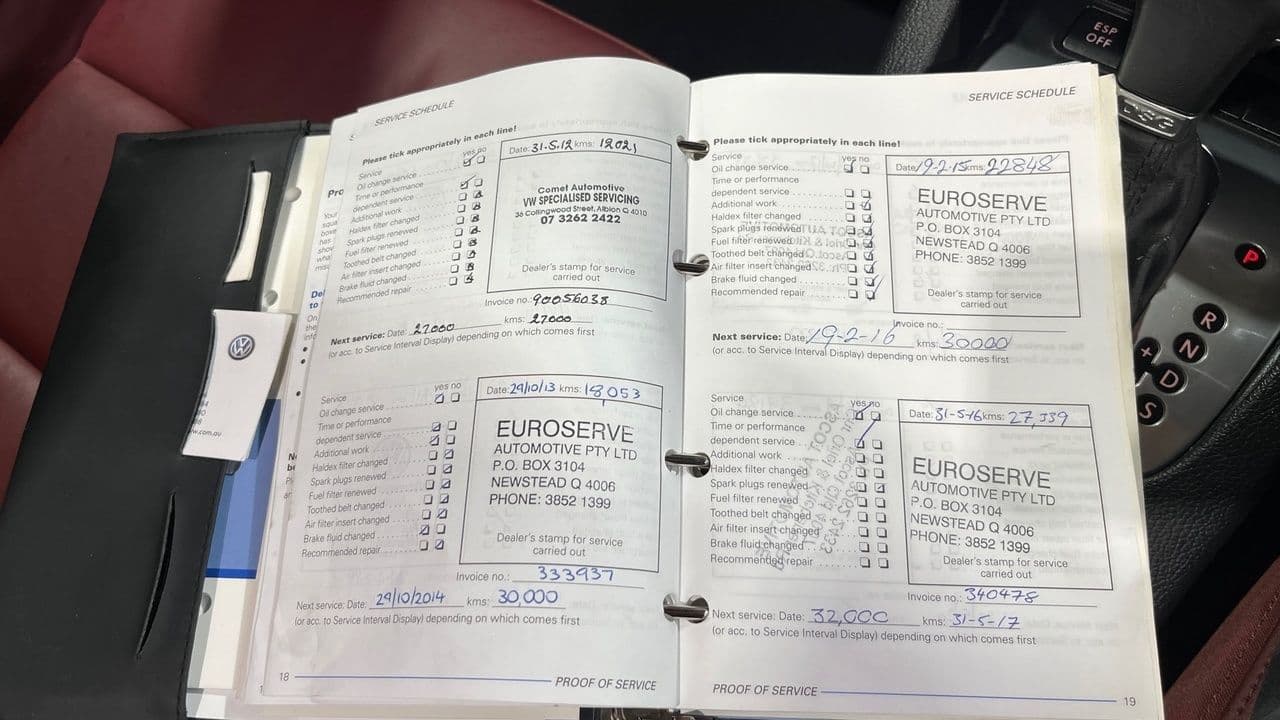 SERVICE SCHEDULE
Please tick appropriately in each line!
yes no
Service
Oil change service
Time or performance
dependent service
Additional work
Haldex filter changed
Spark plugs renewed
Fuel filter renewed
Toothed belt changed
Air filter insert changed
Brake fluid changed
Recommended repair
Date: 31.5.12 kms:
Comet Automotive
VW SPECIALISED SERVICING
36 Collingwood Street, Albion Q 4010
07 3262 2422
Dealer's stamp for service
carried out
Invoice no.: 90056038
Next service: Date: 27000 kms: 27000
(or acc. to Service Interval Display) depending on which comes first
yes no
Service
Oil change service
Time or performance
dependent service
Additional work
Haldex filter changed
Spark plugs renewed
Fuel filter renewed
Toothed belt changed
Air filter insert changed
Brake fluid changed
Recommended repair
Date: 29/10/13 kms: 18,053
EUROSERVE
AUTOMOTIVE PTY LTD
P.O. BOX 3104
NEWSTEAD Q 4006
PHONE: 3852 1399
Dealer's stamp for service
carried out
Invoice no.: 333937
Next service: Date: 29/10/2014 kms: 30,000
(or acc. to Service Interval Display) depending on which comes first
18
PROOF OF SERVICE
SERVICE SCHEDULE
Please tick appropriately in each line!
yes no
Service
Oil change service
Time or performance
dependent service
Additional work
Haldex filter changed
Spark plugs renewed
Fuel filter renewed
Toothed belt changed
Air filter insert changed
Brake fluid changed
Recommended repair
Date: 19-2-15 kms: 22848
EUROSERVE
AUTOMOTIVE PTY LTD
P.O. BOX 3104
NEWSTEAD Q 4006
PHONE: 3852 1399
Dealer's stamp for service
carried out
Invoice no.:
Next service: Date: 19-2-16 kms: 30000
(or acc. to Service Interval Display) depending on which comes first
yes no
Service
Oil change service
Time or performance
dependent service
Additional work
Haldex filter changed
Spark plugs renewed
Fuel filter renewed
Toothed belt changed
Air filter insert changed
Brake fluid changed
Recommended repair
Date: 31-5-16 kms: 27,339
EUROSERVE
AUTOMOTIVE PTY LTD
P.O. BOX 3104
NEWSTEAD Q 4006
PHONE: 3852 1399
Dealer's stamp for service
carried out
Invoice no.: 340478
Next service: Date: 32,000 kms: 31-5-17
(or acc. to Service Interval Display) depending on which comes first
PROOF OF SERVICE
19
ESP
OFF
DSG
P
R
N
D
S
+
w.com.au